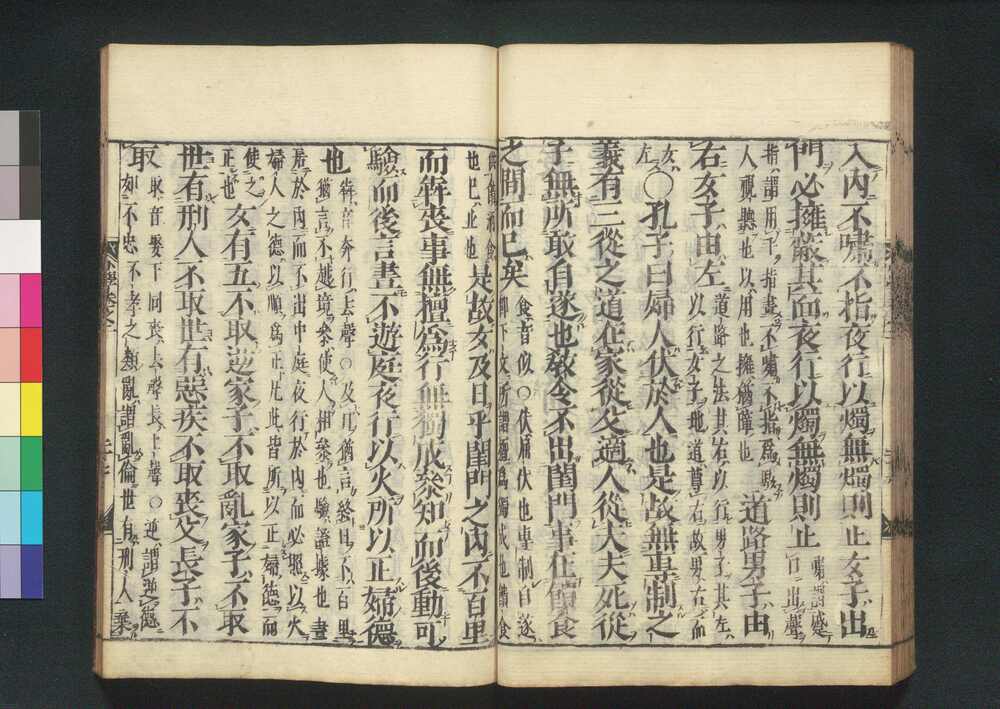 入內不嘯不指夜行以燭無燭則止女子出
門必擁蔽其面夜行以燭無燭則止嘯謂蹙
口出聲
指謂用手指畫不嘯不指爲駭
人視聽也以用也擁猶障也道路男子由
右女子由左道路之法其右以行男子其左
以行女子地道尊右故男右而
女
左〇孔子曰婦人伏於人也是故無專制之
義有三從之道在家從父適人從夫夫死從
子無所敢自遂也敎令不出閨門事在饋食
之間而已矣食音似〇伏屈伏也專制自遂
卽下文所謂擅爲獨成也饋食
供饋酒食
也已止也是故女及日乎閨門之內不百里
而犇喪事無擅爲行無獨成參知而後動可
驗而後言晝不遊庭夜行以火所以正婦德
也犇音奔行去聲〇及日猶言終日不百里
猶言不越境參使人相參也驗證據也晝
居於內而不出中庭夜行於內而必照以火
婦人之德以順爲正凡此皆所以正婦德而
使之
正也女有五不取逆家子不取亂家子不取
世有刑人不取世有惡疾不取喪父長子不
取取音娶下同喪去聲長上聲〇逆謂逆德
如不忠不孝之類亂謂亂倫世有刑人棄